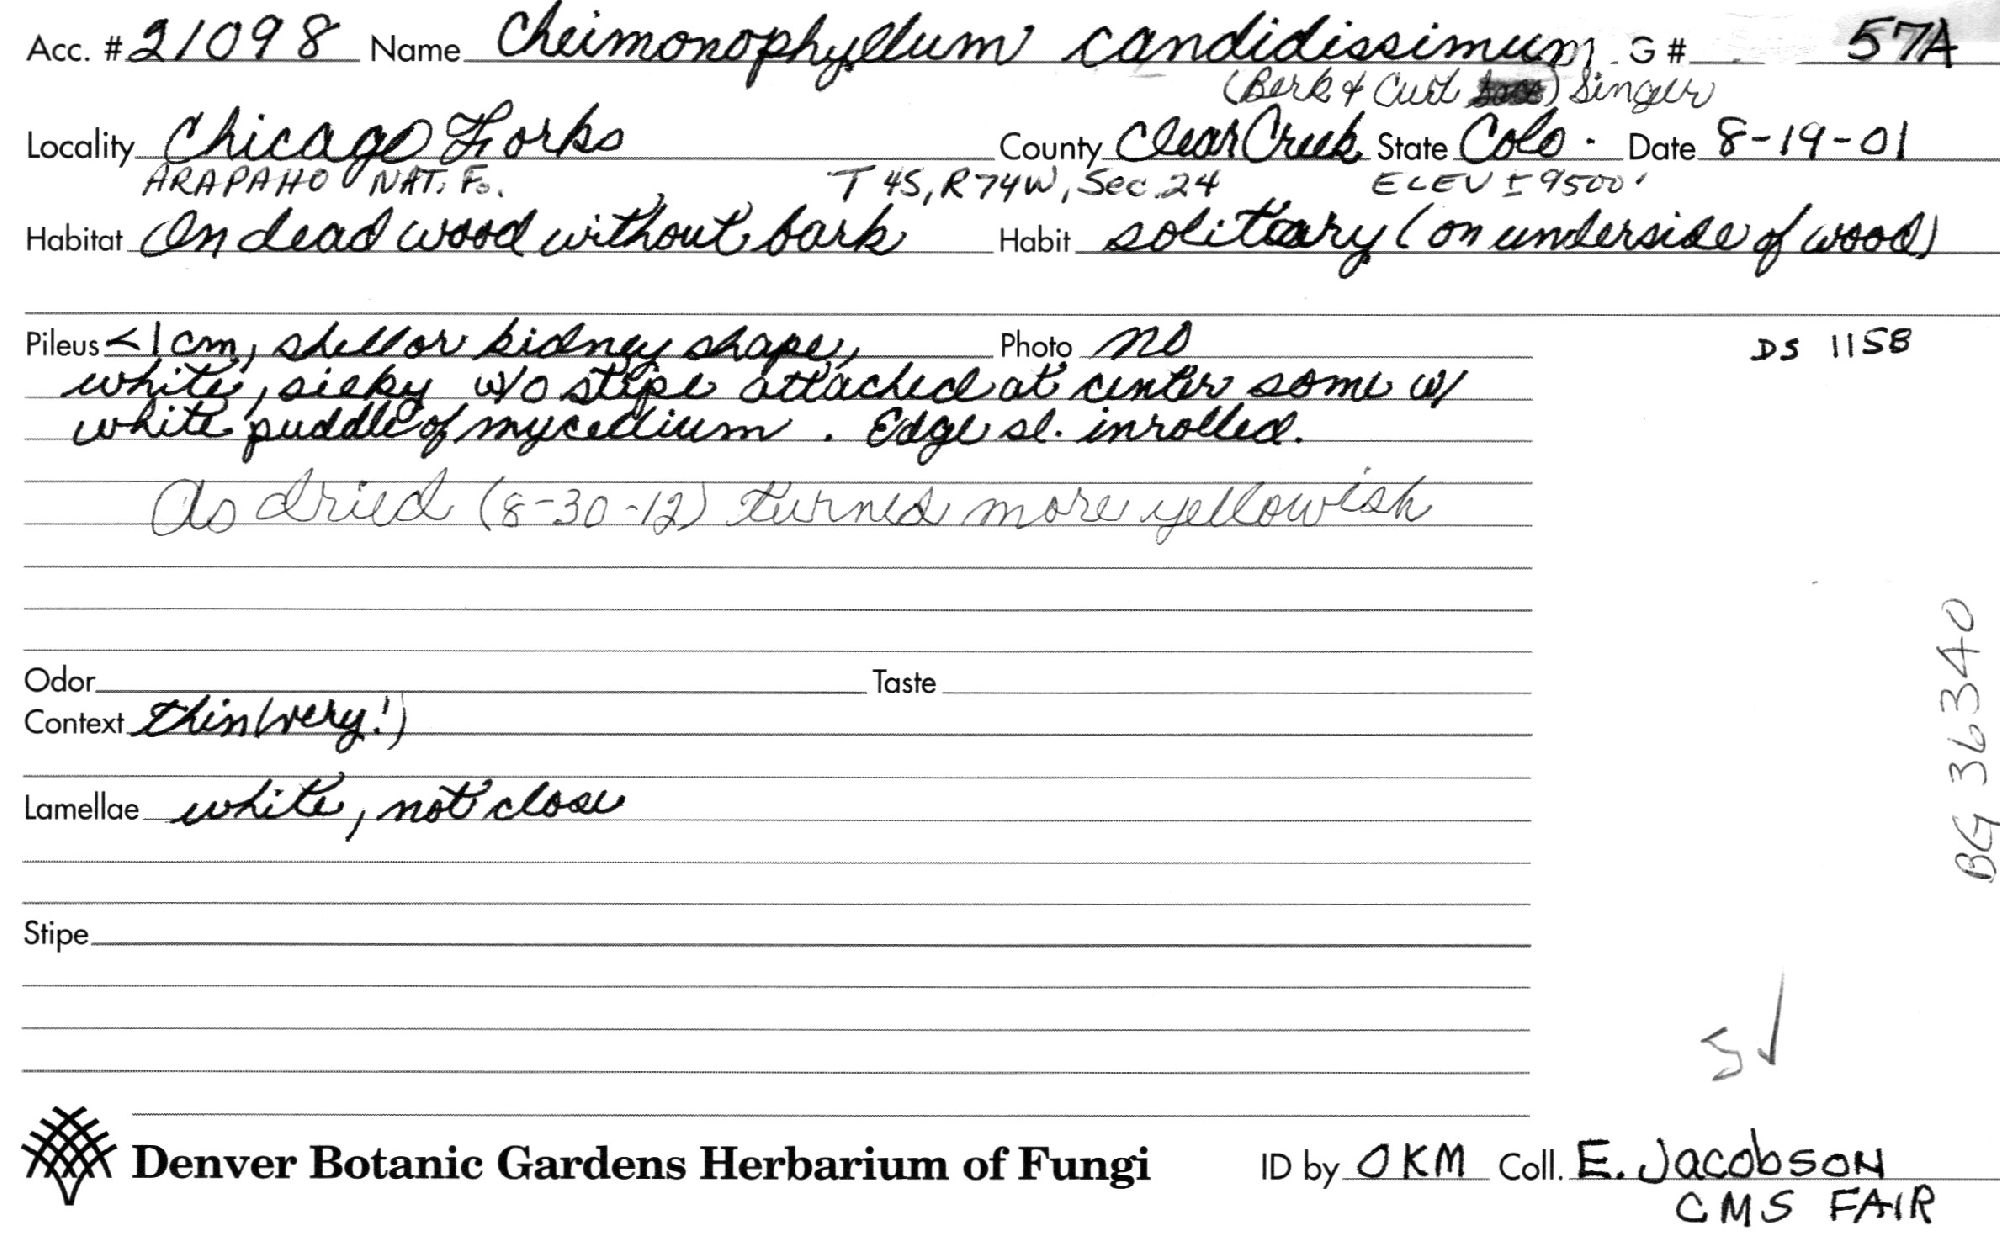 Acc. # 21098 Name Cheimonophyllum candidissimum G# 57A
(Berk & Curt ) Singer
Locality Chicago Forks County Clear Creek State Colo. Date 8-19-01
ARAPAHO NAT. Fo. T 4S, R 74W, Sec. 24 ELEV ± 9500'
Habitat On dead wood without bark Habit solitary (on underside of wood)
Pileus <1cm, shell or kidney shape, Photo no DS 1158
white, silky w/o stipe attached at center some w/
white puddle of mycelium. Edge sl. inrolled.
As dried (8-30-12) turned more yellowish
Odor Taste
Context thin (very!)
Lamellae white, not close
BG 36340
Stipe
5 ✓
Denver Botanic Gardens Herbarium of Fungi ID by OKM Coll. E. Jacobson
CMS FAIR